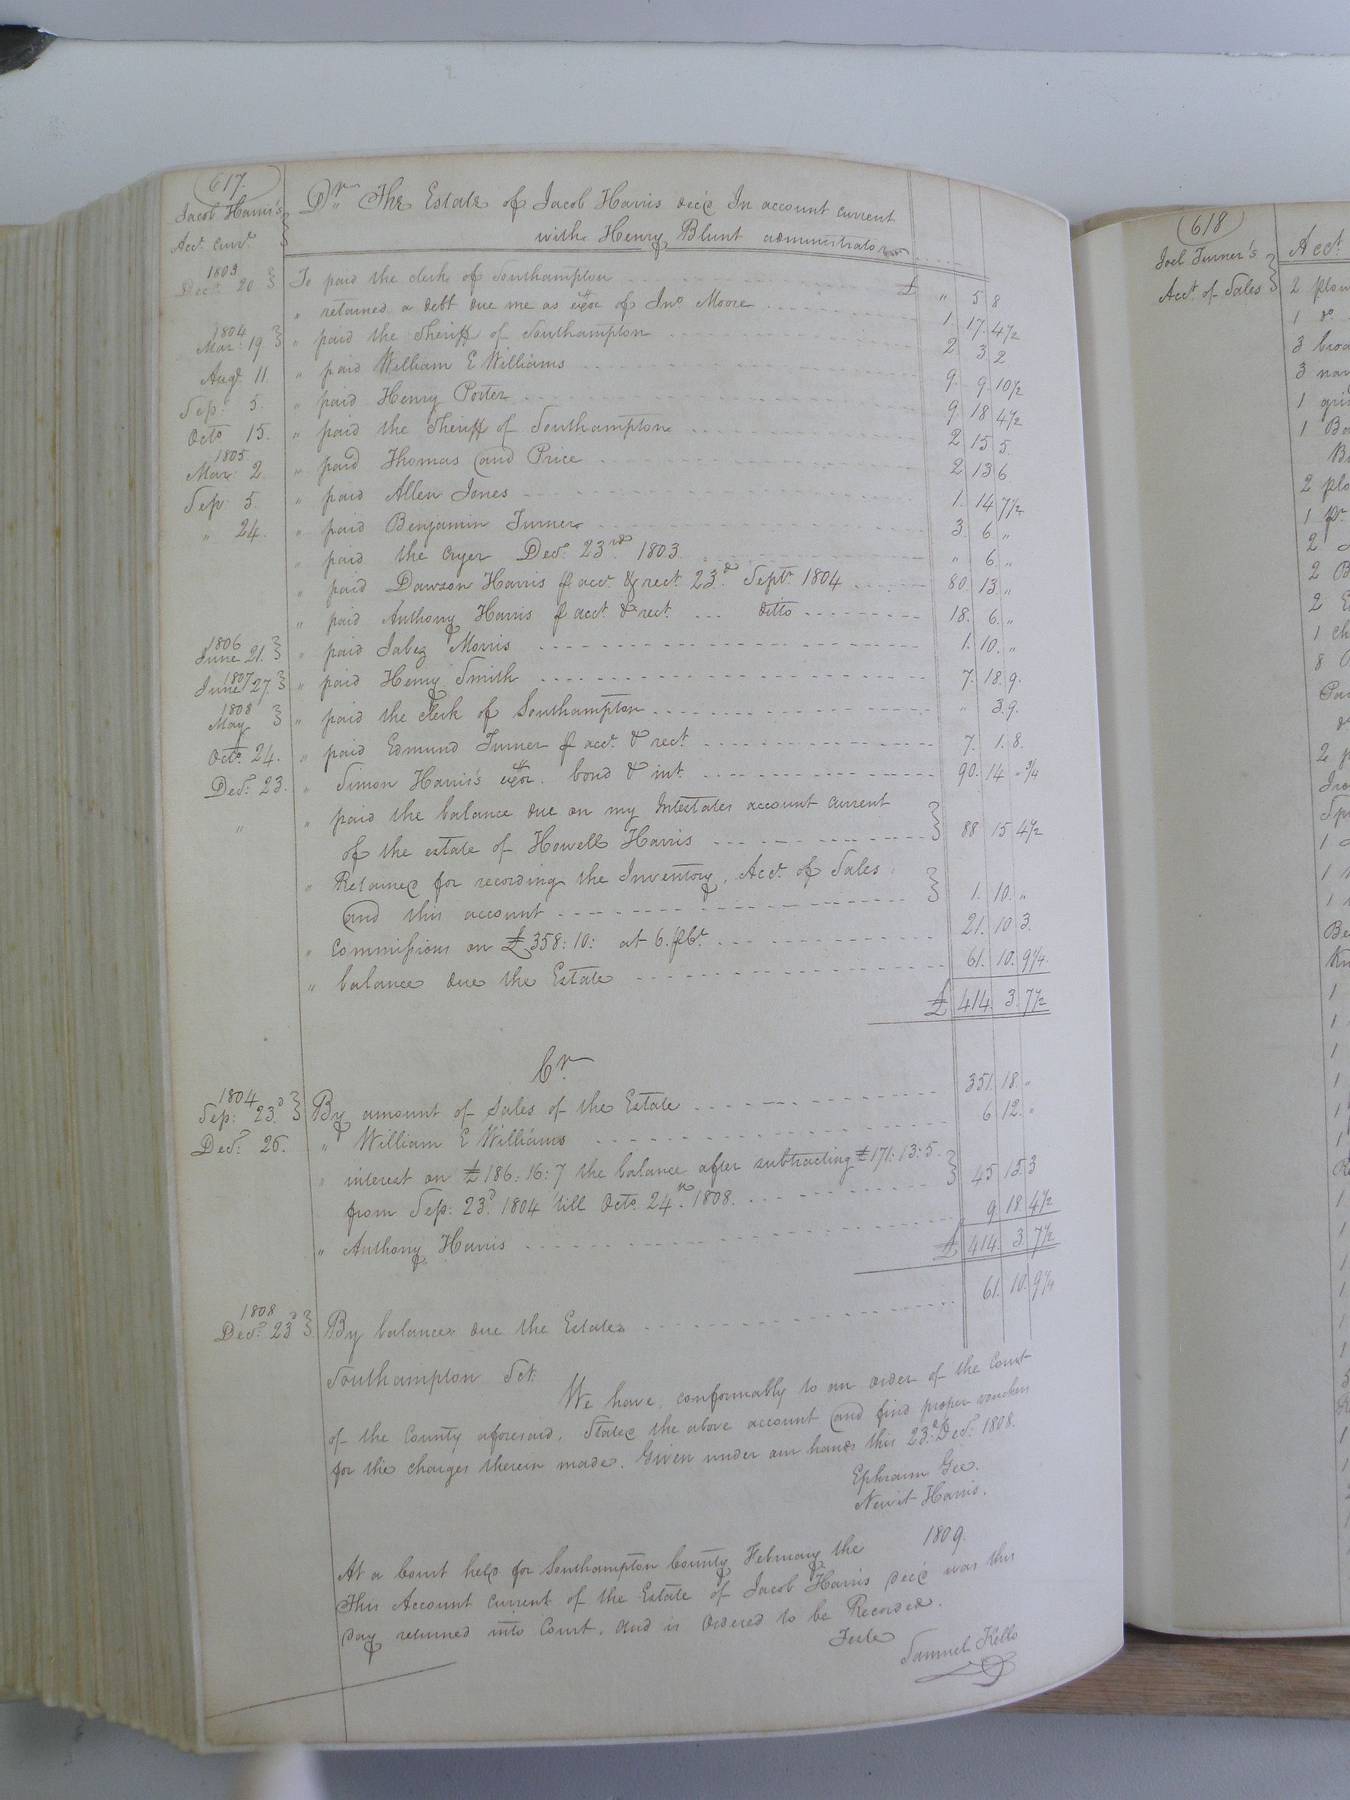 617.
Jacob Harris's
Acct. Curr.
Dr. The Estate of Jacob Harris decd. In account current
with Henry Blunt administrator
1803
Decr. 20 To paid the clerk of Southampton £ " 5 8
" retained a debt due me as exor of Jno. Moore 1. 17. 4 1/2
1804
Mar. 19 " paid the Sheriff of Southampton 2 3 2
Augt. 11. " paid William E Williams 9. 9. 10 1/2
Sep. 5. " paid Henry Porter 9 18 4 1/2
Octo. 15. " paid the Sheriff of Southampton 2 15 5.
1805.
Mar. 2. " paid Thomas and Price 2 13 6
Sep 5. " paid Allen Jones 1. 14 7 1/2
" 24. " paid Benjamin Turner 3. 6 "
" paid the Cryer Decr. 23rd. 1803. " 6. "
" paid Dawson Harris p acct. & rect. 23d. Septr. 1804 80. 13. "
" paid Anthony Harris p acct. & rect. ditto 18. 6. "
1806
June 21. " paid Jabez Morris 1. 10. "
1807
June 27. " paid Henry Smith 7. 18. 9.
1808
May " paid the Clerk of Southampton " 3. 9.
Octo. 24. " paid Edmund Turner p acct. & rect. 7. 1. 8.
Decr. 23. " Simon Harris's exor. bond & int. 90. 14 " 3/4
" " paid the balance due on my Intestates account current
of the estate of Howell Harris 88 15 4 1/2
" Retained for recording the Inventory, Acct. of Sales,
and this account 1. 10. "
" Commissions on £358: 10: at 6. p Ct. 21. 10 3.
" balance due the Estate 61. 10. 9 1/4.
£ 414. 3. 7 1/2
Cr.
1804
Sep: 23d. By amount of Sales of the Estate 351. 18. "
Decr. 26. " William E Williams 6 12. "
" interest on £186: 16: 7 the balance after subtracting £171: 13: 5.
from Sep: 23d. 1804 'till Octo. 24th. 1808. 45 15 3
" Anthony Harris 9 18. 4 1/2
£ 414. 3. 7 1/2
1808
Decr. 23d. By balance due the Estate 61. 10. 9 1/4
Southampton Sct.
We have, conformably to an order of the Court
of the County aforesaid, Stated the above account and find proper vouchers
for the charges therein made. Given under our hands this 23d. Decr. 1808.
Ephraim Gee.
Newit Harris.
At a Court held for Southampton County February the 1809.
This Account Current of the Estate of Jacob Harris decd was this
day returned into Court, and is Ordered to be Recorded.
Teste Samuel Kello
618
Joel Turner's
Acct. of Sales
Acct.
2 plow
1 do
3
3
1
1
2 plo
1 pr
2
2 B
2
1
8
2
1
1
1
1
1
1
1
1
1